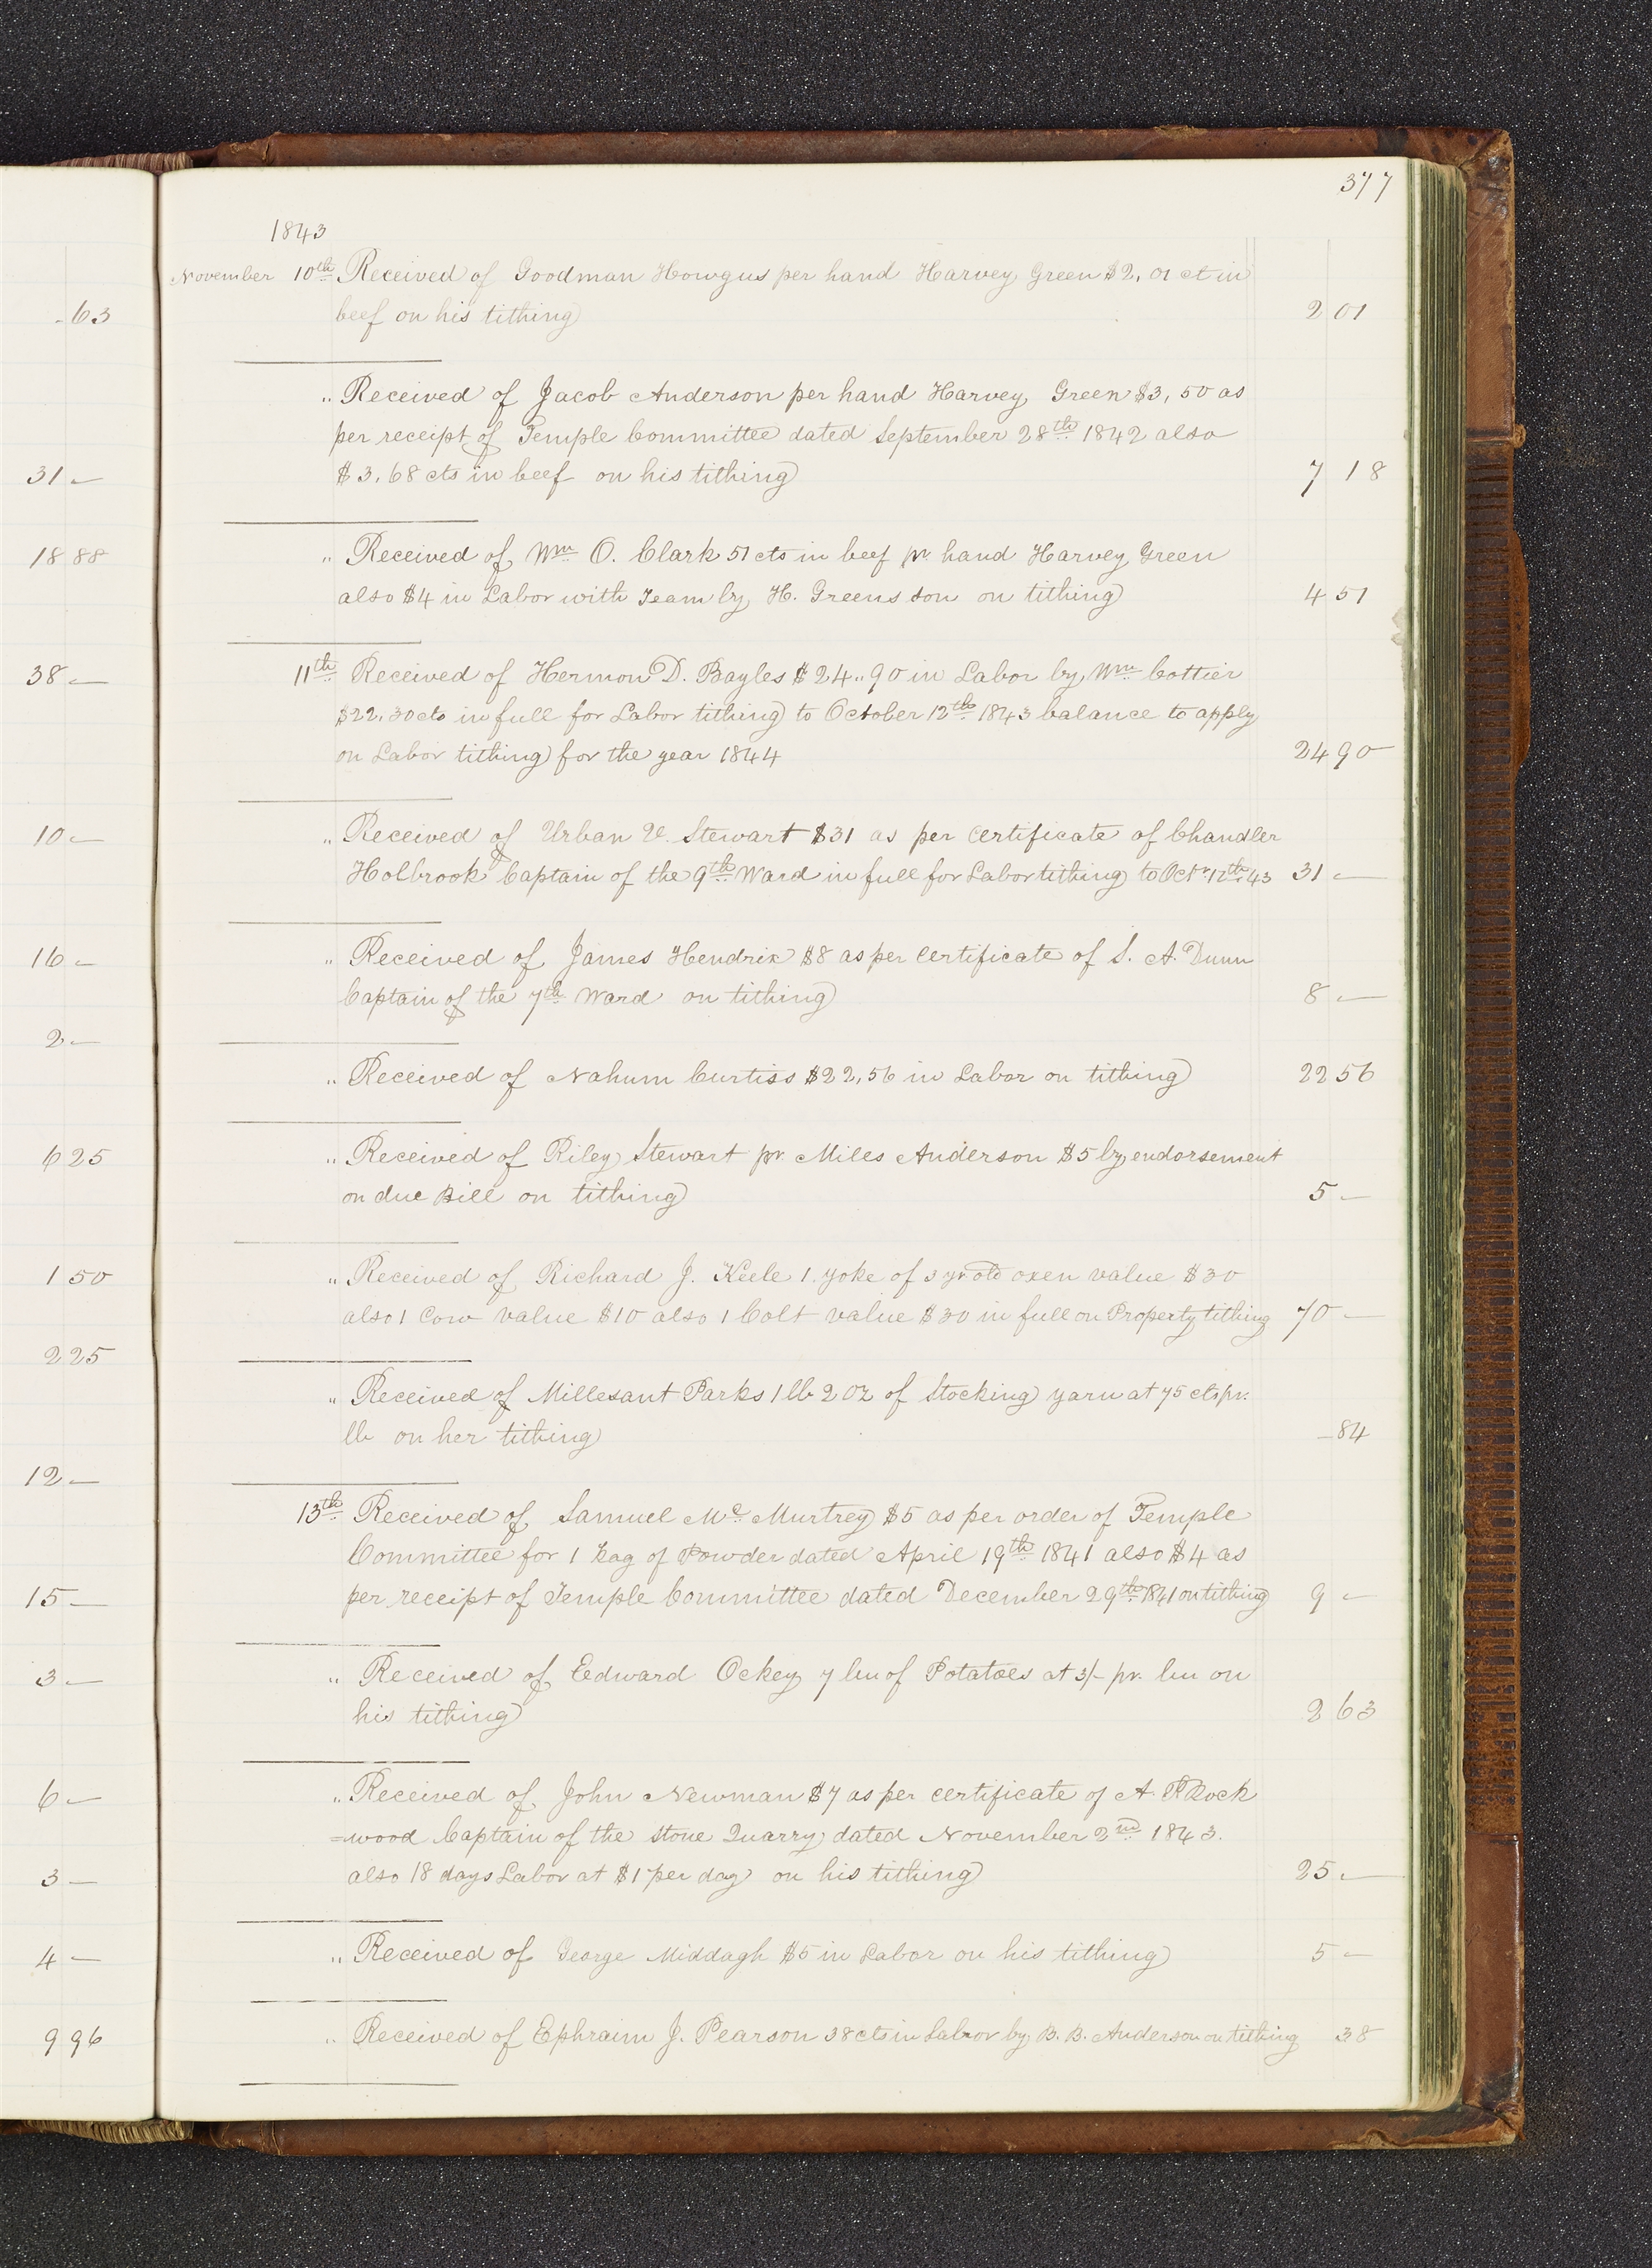 377
1843
November 10th Received of Goodman Howgus per hand Harvey Green $2, 01 ct in
beef on his tithing 2 01
" Received of Jacob Anderson per hand Harvey Green $3, 50 as
per receipt of Temple Committee dated September 28th 1842 also
$3, 68 cts in beef on his tithing 7 18
" Received of Wm O. Clark 51 cts in beef pr. hand Harvey Green
also $4 in Labor with Team by H. Greens son on tithing 4 51
11th Received of Hermon D. Bayles $24 " 90 in Labor by Wm Cottier
$22, 30 cts in full for Labor tithing to October 12th 1843 balance to apply
on Labor tithing for the year 1844 24 90
" Received of Urban V. Stewart $31 as per certificate of Chandler
Holbrook Captain of the 9th Ward in full for Labor tithing to Octr. 12th 43 31 —
" Received of James Hendrix $8 as per certificate of S. A. Dunn
Captain of the 7th Ward on tithing 8 —
" Received of Nahum Curtiss $22, 56 in Labor on tithing 22 56
" Received of Riley Stewart pr. Miles Anderson $5 by endorsement
on due Bill on tithing 5 —
" Received of Richard J. Keele 1. yoke of 3 yr old oxen value $30
also 1 Cow value $10 also 1 Colt value $30 in full on Property tithing 70 —
" Received of Millesant Parks 1 lb 2 oz of Stocking yarn at 75 cts pr.
lb on her tithing — 84
13th Received of Samuel Mc Murtrey $5 as per order of Temple
Committee for 1 Kag of Powder dated April 19th 1841 also $4 as
per receipt of Temple Committee dated December 29th 1841 on tithing 9 —
" Received of Edward Ockey 7 bu of Potatoes at 3/- pr. bu on
his tithing 2 63
" Received of John Newman $7 as per certificate of A. Rock
=wood Captain of the Stone Quarry dated November 2nd 1843.
also 18 days Labor at $1 per day on his tithing 25 —
" Received of George Middagh $5 in Labor on his tithing 5 —
" Received of Ephraim J. Pearson 38 cts in Labor by B. B. Anderson on tithing 38
- 63
31 —
18 88
38 —
10 —
16 —
2 —
6 25
1 50
2 25
12 —
15 —
3 —
6 —
3 —
4 —
9 96